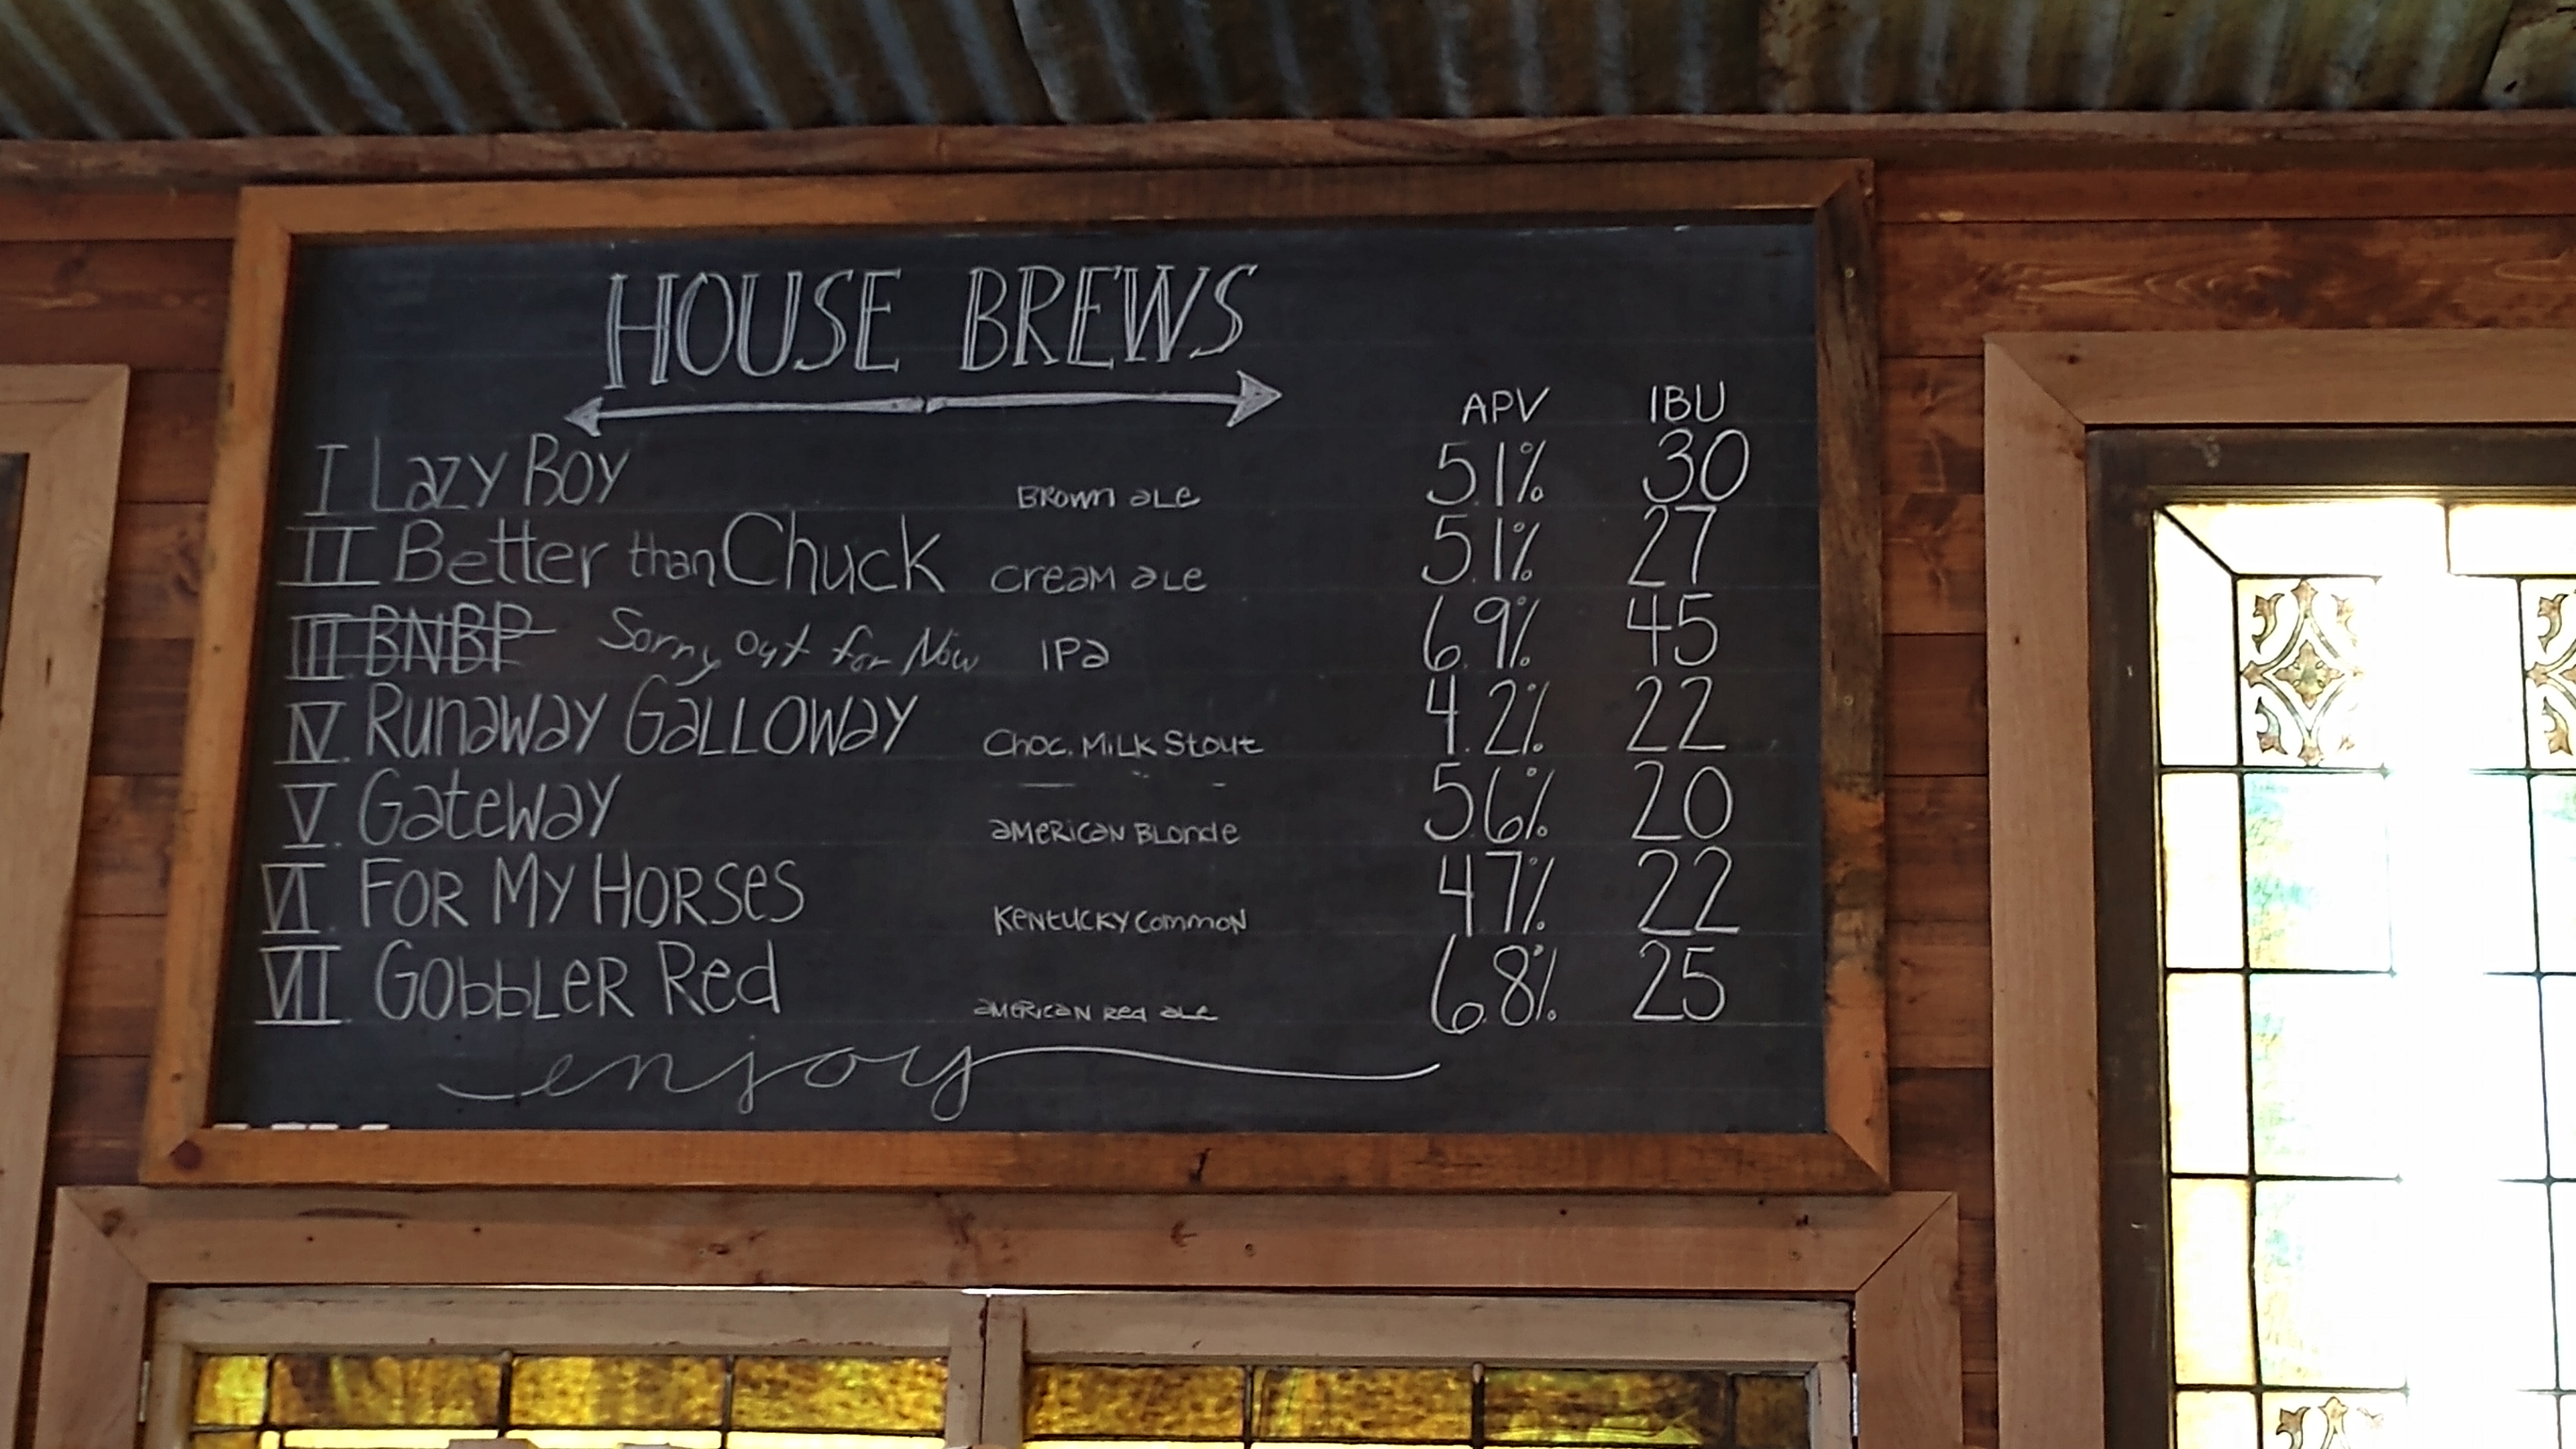 HOUSE BREWS
APV IBU
I Lazy Boy Brown ale 5.1% 30
II Better than Chuck Cream ale 5.1% 27
III BNBP Sorry Out for Now IPa 6.9% 45
IV. Runaway Galloway Choc. Milk Stout 4.2% 22
V. Gateway american Blonde 5.6% 20
VI. For My Horses Kentucky Common 4.7% 22
VII. Gobbler Red american Red ale 6.8% 25
enjoy